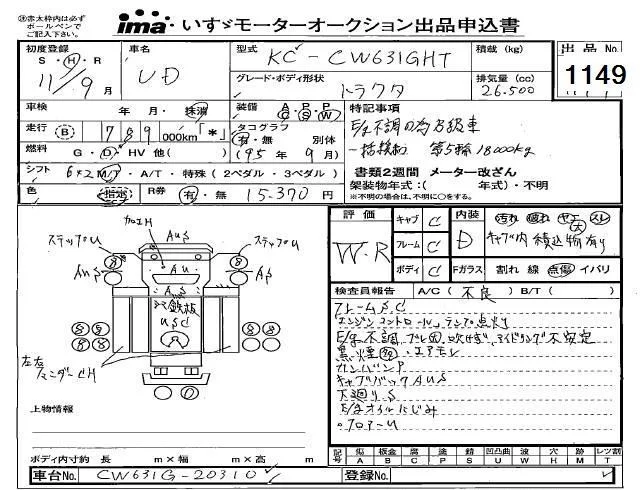 ※赤太枠内は必ずボールペンでご記入下さい。
ima いすゞモーターオークション出品申込書
初度登録 S・H・R 11/9月
車名 UD
型式 KC-CW631GHT
積載(kg)
出品No. 1149
グレード・ボディ形状 トラクタ
排気量(cc) 26.500
車検 年 月・抹消
装備 A・P・P C S W
特記事項
走行 B 7 9 000km「*」
タコグラフ 有・無 別体 (95年 9月)
E/g不調の為B級車
燃料 G・D・HV 他( )
一括検切 第5輪 18000kg
シフト 6×2 M/T・A/T・特殊(2ペダル・3ペダル)
書類2週間 メーター改ざん
架装物年式:( 年式)・不明
※不明の場合は、不明に○をする。
色 指定 R券 有・無 15.370 円
評価 W・R
キャブ C
フレーム C
ボディ C
内装 D
汚れ 破れ ヤニ スレ 大
キャブ内 積込物有り
Fガラス 割れ 線 点傷 イバリ
検査員報告 A/C(不良) B/T( )
フレームS,C
エンジンコントロールランプ点灯
E/g不調
黒煙 エアモレ
キャブバックAUS
下廻りS
E/gオイルにじみ
フロアーU
加工H
ステップU AUS ステップU
AUS AU AUS
鉄板
USC
左右フェンダーCH
上物情報
ボディ内寸約 長 m×幅 m×高 m
記号 傷A 板金B 腐C 塗P 錆S 凹凸曲U 波W 穴H 跡M レツ割T
車台No. CW631G-20310
登録No.